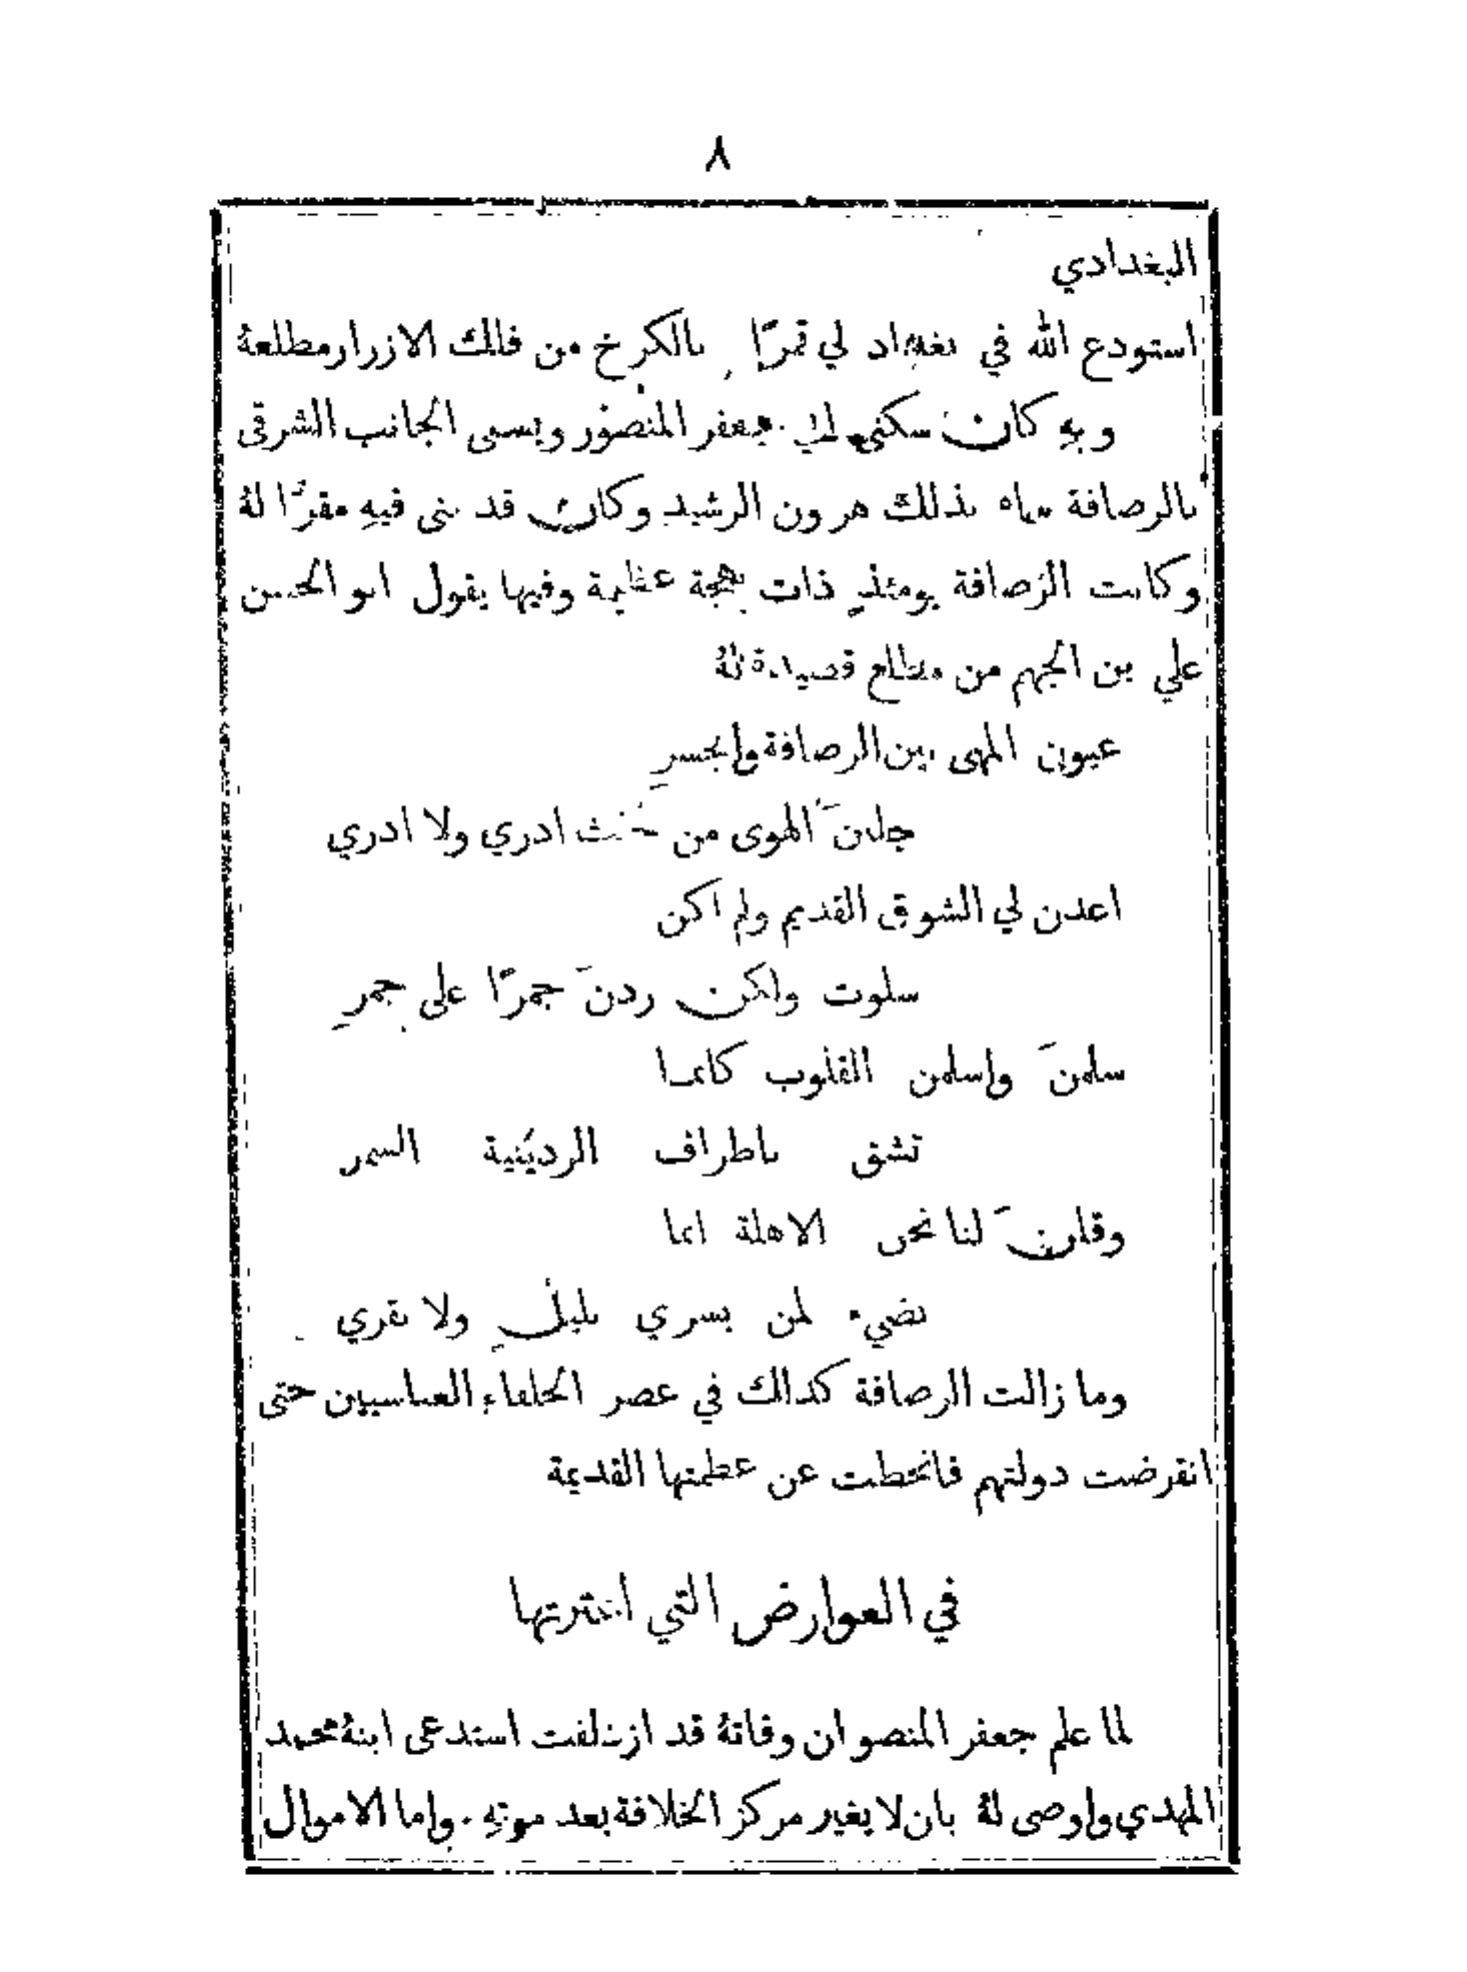 ٨
البغدادي
استودع الله في بغداد لي قمرًا بالكرخ من فلك الازرار مطلعهُ
وبهِ كان سكنى جعفر المنصور ويسمى الجانب الشرقى
بالرصافة سماه بذلك هرون الرشيد وكان قد بنى فيهِ مقرًّا لهُ
وكانت الرصافة يومئذٍ ذات بهجة عظيمة وفيها يقول ابو الحسن
علي بن الجهم من مطلع قصيدة لهُ
عيون المهى بين الرصافة والجسرِ
جلبنَ الهوى من حيث ادري ولا ادري
اعدن لي الشوق القديم ولم اكن
سلوت ولكن زدنَ جمرًا على جمرِ
سلمنَ واسلمن القلوب كانما
تشق باطراف الردينية السمر
وقلنَ لنا نحن الاهلة انما
نضيء لمن يسري بليلٍ ولا نقري
وما زالت الرصافة كذلك في عصر الخلفاء العباسيين حتى
انقرضت دولتهم فانحطت عن عظمتها القديمة
في العوارض التي اعترتها
لما علم جعفر المنصو ان وفاتهُ قد ازدلفت استدعى ابنهُ محمد
المهدي واوصى لهُ بان لا يغير مركز الخلافة بعد موتهِ. واما الاموال